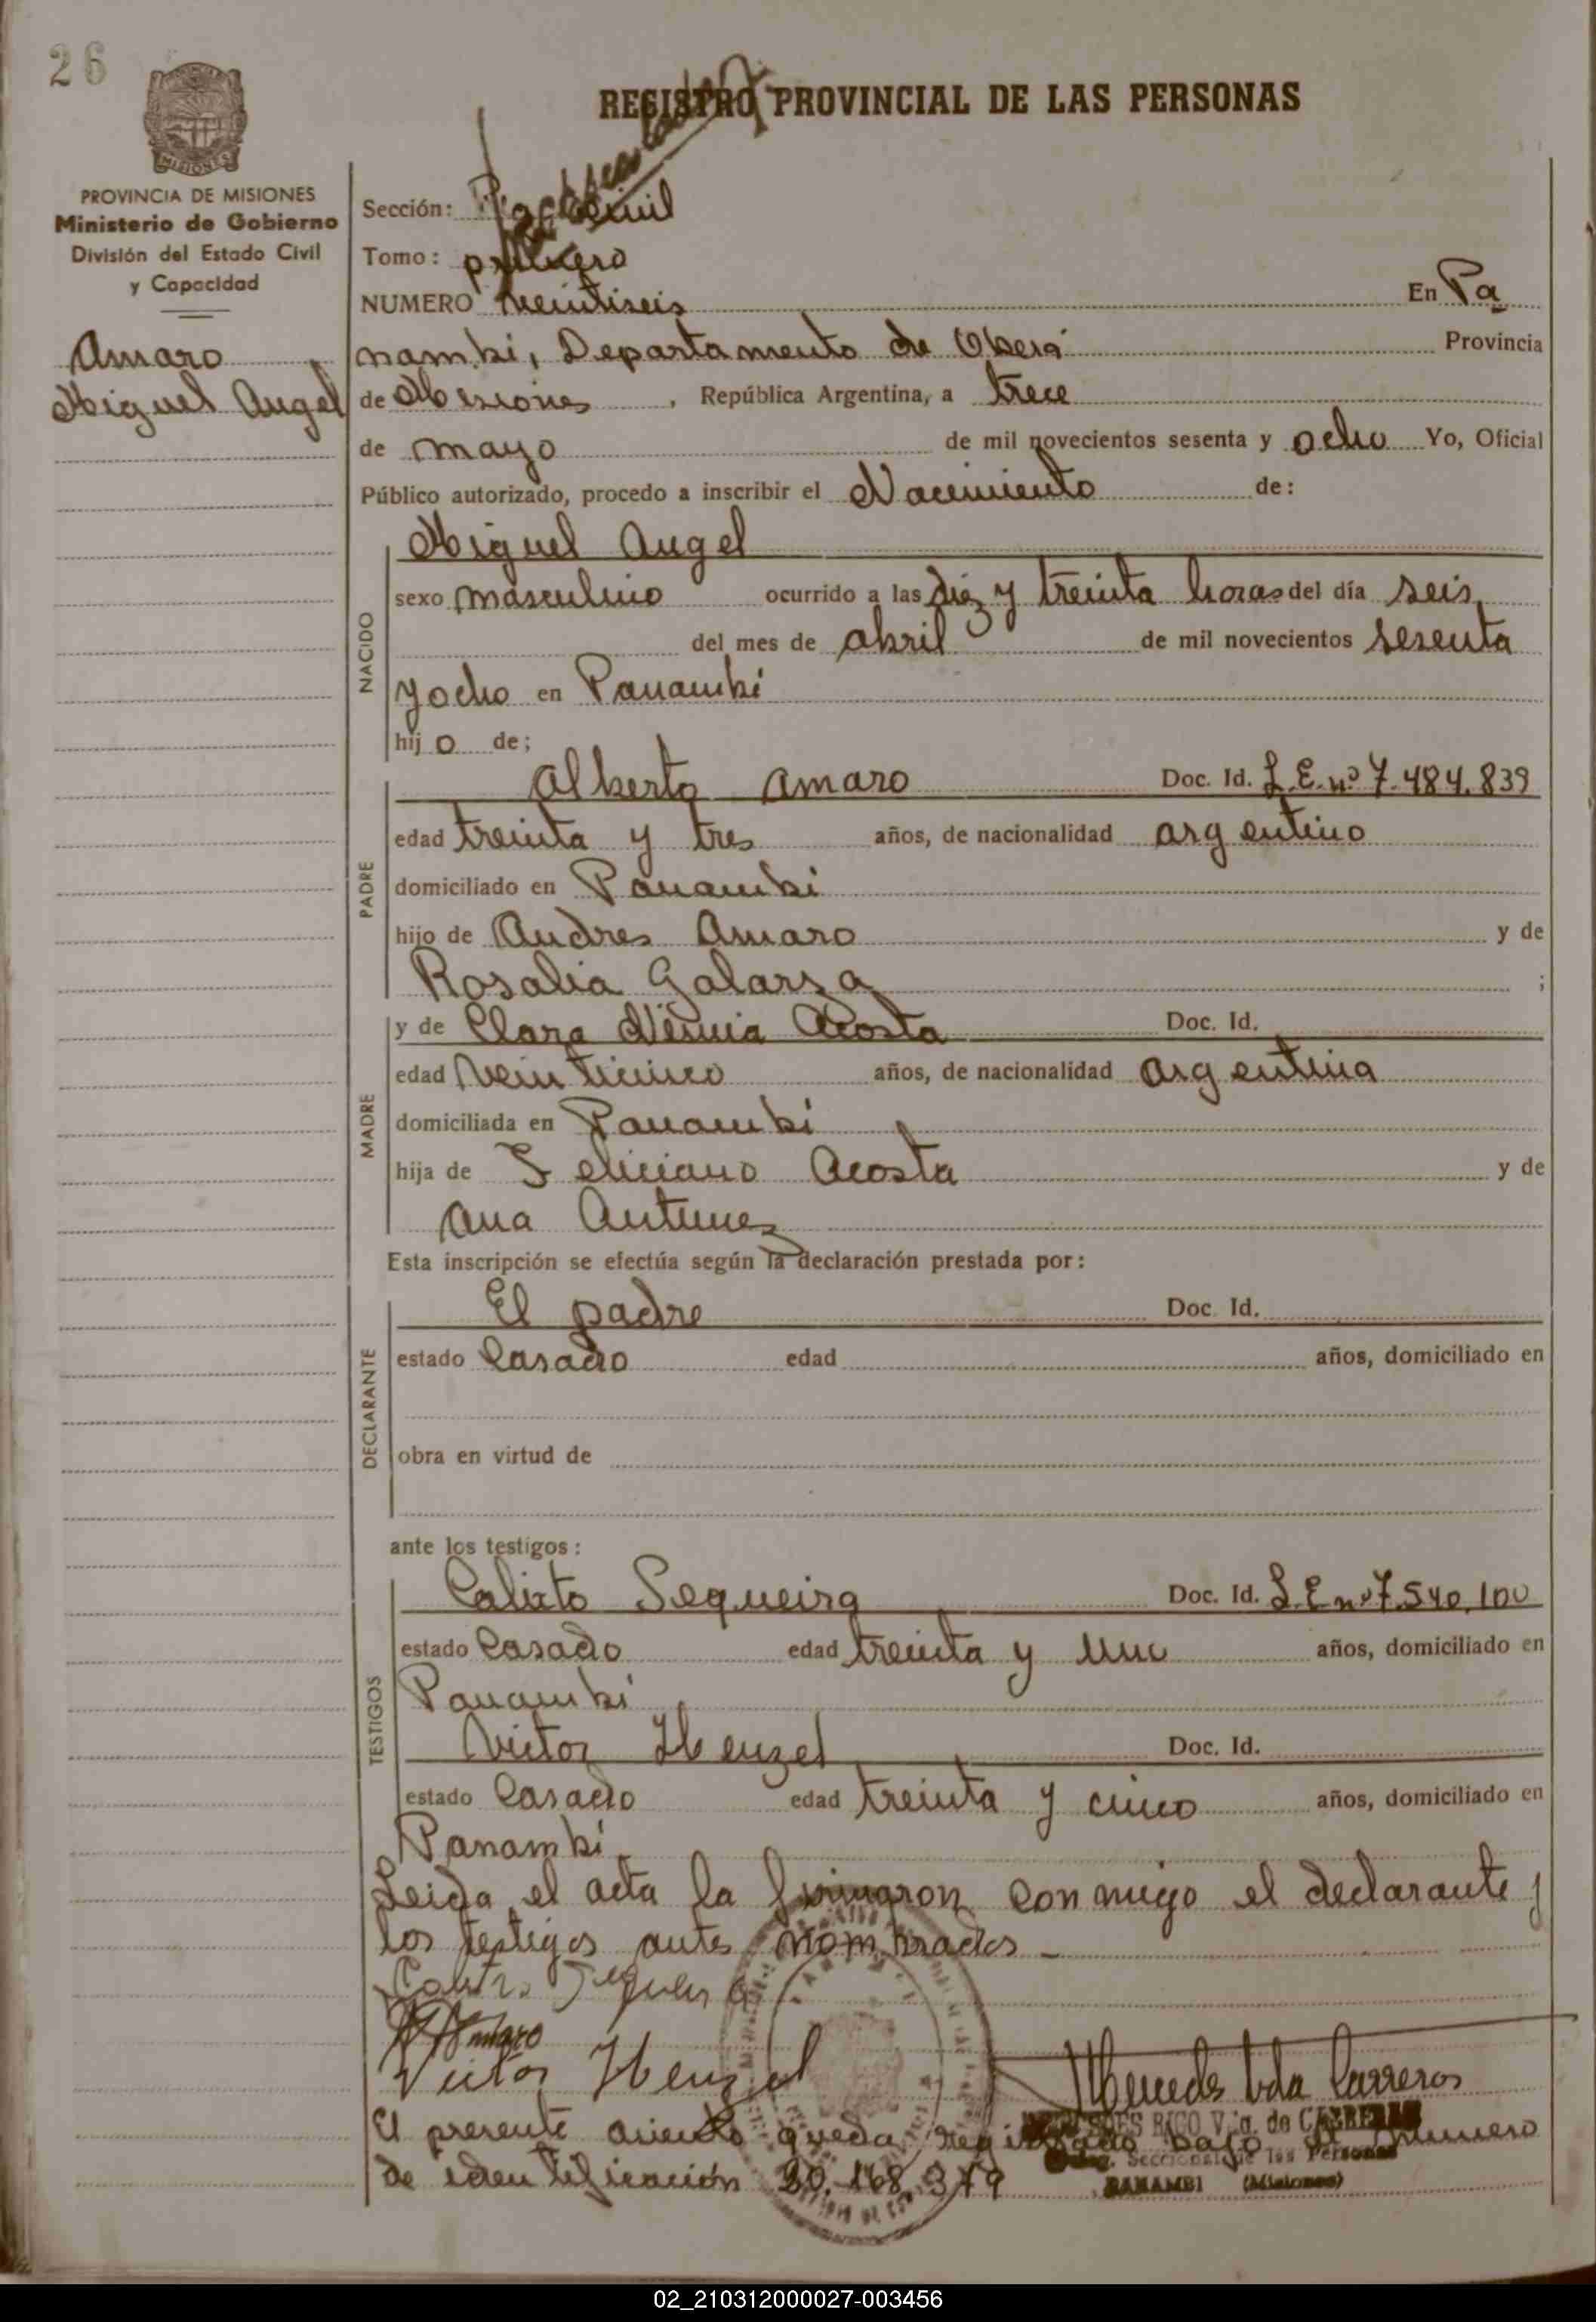 26
REGISTRO PROVINCIAL DE LAS PERSONAS
MISIONES
PROVINCIA DE MISIONES
Ministerio de Gobierno
División del Estado Civil
y Capacidad
Amaro
Miguel Angel
Sección:
Tomo: primero
NUMERO veintiseis En Pa
nambi, Departamento de Oberá Provincia
de Misiones, República Argentina, a trece
de mayo de mil novecientos sesenta y ocho Yo, Oficial
Público autorizado, procedo a inscribir el Nacimiento de:
NACIDO
Miguel Angel
sexo masculino ocurrido a las diez y treinta horas del día seis
del mes de abril de mil novecientos sesenta
y ocho en Panambi
hij o de;
PADRE
Alberto Amaro Doc. Id. L.E. nº 7.484.839
edad treinta y tres años, de nacionalidad argentino
domiciliado en Panambi
hijo de Andres Amaro y de
Rosalia Galarza ;
MADRE
y de Clara Acosta Doc. Id.
edad veinticinco años, de nacionalidad argentina
domiciliada en Panambi
hija de Feliciano Acosta y de
Ana Antunez
Esta inscripción se efectúa según la declaración prestada por:
DECLARANTE
El padre Doc. Id.
estado Casado edad años, domiciliado en
obra en virtud de
ante los testigos:
TESTIGOS
Calixto Sequeira Doc. Id. L.E nº 7.540.100
estado Casado edad treinta y uno años, domiciliado en
Panambi
Victor Henzel Doc. Id.
estado Casado edad treinta y cinco años, domiciliado en
Panambi
Leida el acta la firmaron conmigo el declarante y
los testigos antes nombrados -
Amaro
Victor Henzel
Mercedes Vda Carreros
El presente asiento queda registrado bajo el numero
de identificación 20.168.379
PANAMBI (Misiones)
02_210312000027-003456